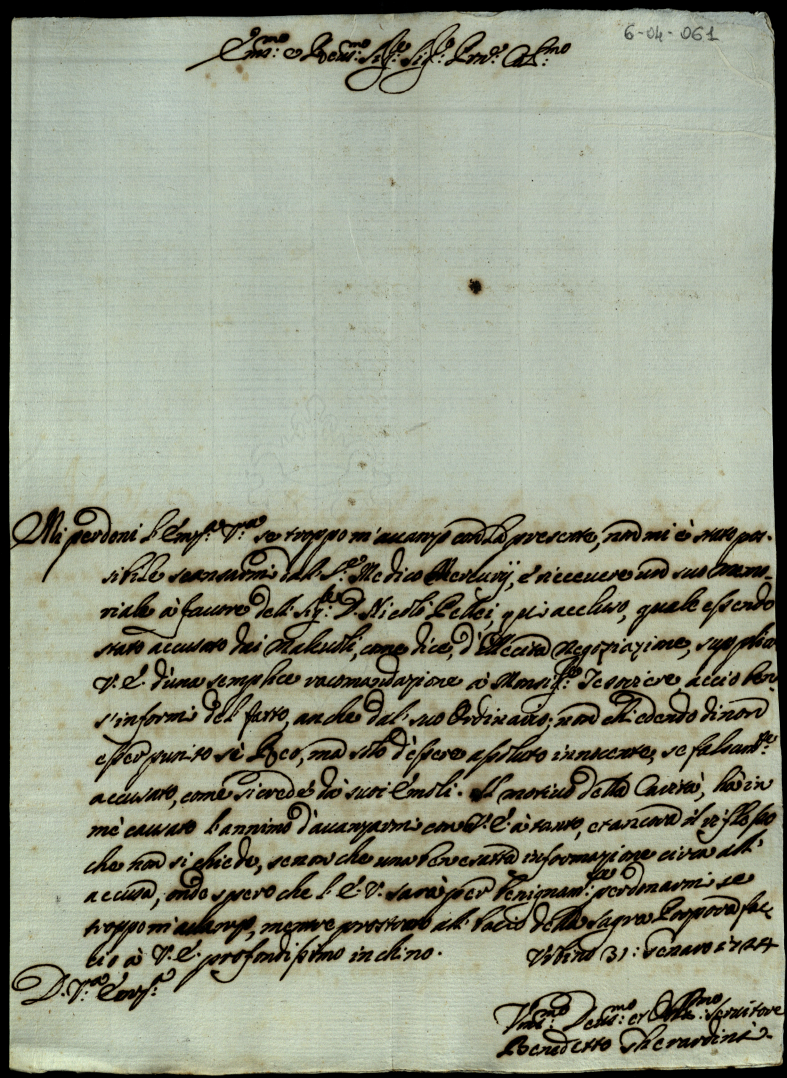 6-04-061
Em:mo e Reu:mo Sig:re Sig:re Pnē: Col:mo
Mi perdoni l'Em:a V:ra se troppo m'auanzo con la presente, non mi è stato pos-
sibile scansarmi dal S:r Medico Mercurij, e riceuere un suo memo-
riale à fauore del Sig:re D. Nicolò Pellei, quì accluso, quale essendo
stato accusato dai maleuoli, come dice, d'illecita negoziazione, supplica
V. E. d'una semplice racomandazione à Monsig:re Tesoriere, acciò ben
s'informi del fatto, anche dal suo Ordinario; non chiedendo di non
esser punito sè Reo, mà solo d'essere assoluto innocente, se falsam:te
accusato, come si crede da suoi Emoli. Il motiuo della Carità, hà in
mè causato l'annimo d'auanzarmi con V. E. à tanto, et ancora il riflesso
che non si chiede, se non che una ben esatta informazione circa all'
accusa, onde spero che l'E. V. sarà per benignam:te perdonarmi se
troppo m'auanzo, mentre prostrato al bacio della Sagra Porpora fac-
cio à V. E. profondissimo inchino. Vrbino 31: Genaro 1724
D. V:ra Em:a
Vm:mo Deu:mo et Obl:mo Seruitore
Benedetto Gherardini